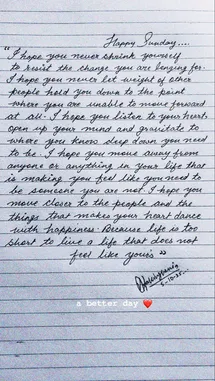 Happy Sunday....
"I hope you never shrink yourself
to resist the change you are longing for.
I hope you never let weight of other
people hold you down to the point
where you are unable to move forward
at all. I hope you listen to your heart,
open up your mind and gravitate to
where you know deep down you need
to be. I hope you move away from
anyone or anything in your life that
is making you feel like you need to
be someone you are not. I hope you
move closer to the people and the
things that makes your heart dance
with happiness. Because life is too
short to live a life that does not
feel like yours"
a better day ❤️